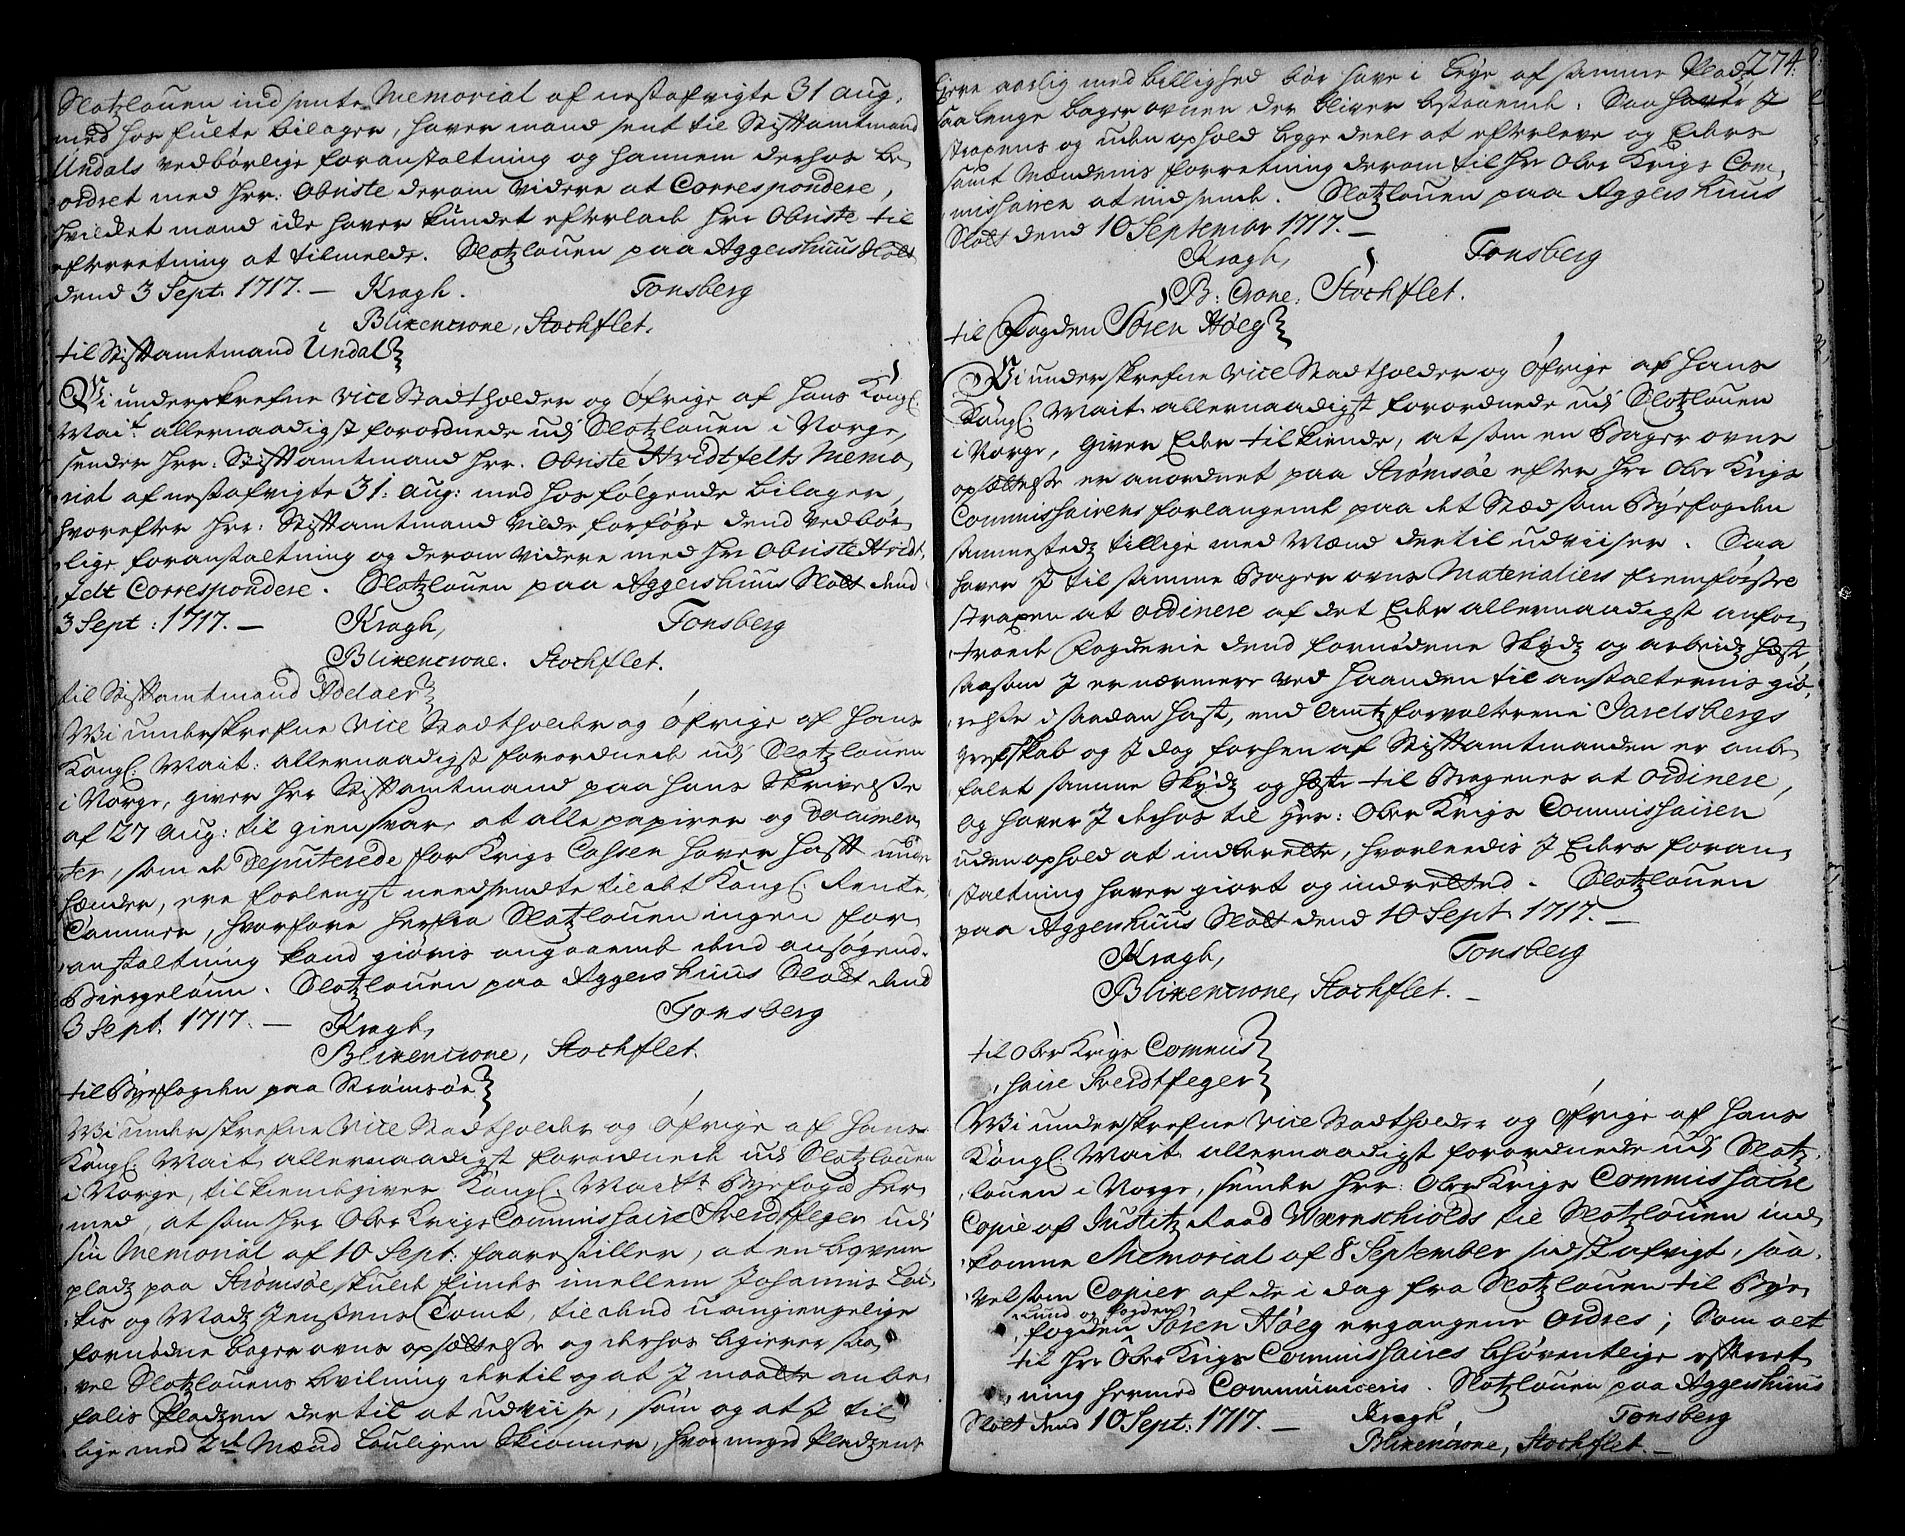 Slotzlouen indsente Memorial af nestafvigte 31 aug.
med hos fulte bilager, haver mand sent til Stifftamtmand
Undals vedbörlige foranstaltning og hannem derhos be-
ordret med Hrr: Obriste derom videre at Correspondere,
hvilcket mand icke haver kundet efterlade Hrr Obriste til
efterretning at tilmelde. Slotzlouen paa Aggershuus Slott
dend 3 Sept. 1717. — Kragh. Tonsberg
Blixencrone, Stochflet.
til Stifftamtmand Undal
Vi underskrefne Vice Stadtholder og Øfrige af Hans Kongl.
Mait. allernaadigst forordnede udj Slotzlouen i Norge,
sender Hrr: Stifftamtmand Hrr. Obriste Hvidtfelts Memo-
rial af nestafvigte 31: aug: med hos følgende bilager,
hvorefter Hrr: Stifftamtmand vilde forføye dend vedbör-
lige foranstaltning og derom videre med Hr Obriste Hvidt-
felt Correspondere. Slotzlouen paa Aggershuus Slott dend
3 Sept: 1717. — Kragh, Tonsberg
Blixencrone. Stochflet.
til Stifftamtmand Adelaer
Wi underskrefne Vice Stadtholder og Øfrige af Hans
Kongl. Mait: allernaadigst forordnede udj Slotzlouen
i Norge, giver Hrr Stifftamtmand paa hans Skrivelsse
af 27 aug: til giensvar, at alle papirer og Documen-
ter, som de Deputerede for Krigs Cassen haver hafft under
hænder, ere forlengst needsendte til det Kongl. Rente-
Cammer, hvorfore herfra Slotzlouen ingen for-
anstaltning kand giøris angaaende dend ansøgende
Biergeløun. Slotzlouen paa Aggershuus Slott dend
3 Sept. 1717. — Kragh, Tonsberg
Blixencrone, Stochflet.
til Byefogden paa Strømsöe
Wi underskrefne Vice Stadtholder og Øfrige af Hans
Kongl. Mait. allernaadigst forordnede udj Slotzlouen
i Norge, tilkiendegiver Kongl. Maitts Byefogd her-
med, at som Hrr Ober Krigs Commissaire Sverdtfeger udj
sin Memorial af 10 Sept: forrestiller, at en beqvem
pladz paa Strømsöe skulde findes imellem Johannis Loi-
tis og Madz Jenssens Tomt, til dend uomgiengelige
fornødne bager ovns opsættelsse og derhos begierer saa-
vel Slotzlouens bevilning dertil og at J maatte anbe-
falis Pladzen dertil at udviise, som og at J til-
lige med 2de Mænd lovligen Skiønner, hvor meget Pladzens
274.
Eyere aarlig med billighed bör have i leye af samme Pladz
saa lenge bager ovnen der bliver bestaaende. Saa haver J
straxens og uden ophold begge deele at efterleve og Eders
samt Mændenis forretning derom til Hr Ober Krigs Com-
missairen at indsende. Slotzlouen paa Aggershuus
Slott dend 10 September 1717. —
Kragh, Tonsberg
B: Crone. Stochflet.
til Fogden Sören Höeg
Vi underskrefne Vice Stadtholder og Øfrige af Hans
Kongl. Mait. allernaadigst forordnede udj Slotzlouen
i Norge, giver Eder tilkiende, at som en Bager ovns
opsættelsse er anordnet paa Strømsöe efter Hr Ober Krigs
Commissairens forlangende paa det Stæd som Byefogden
sammestedz tillige med Mænd dertil udviiser. Saa
haver J til samme Bager ovns Materialiers fremførsele
straxen at ordinere af det Eder allernaadigst anfor-
troede Fogderie dend fornødene Skydz og arbeidz heste
saasom J er nærmere ved haanden til anstalternis giø-
relsse i saadan hast, end Amtz forvalteren i Jarelsbergs
Grefskab og J dog forhen af Stifftamtmanden er anbe-
falet samme Skydz og heste til Bragenes at ordinere,
og haver J derhos til Hrr: Ober Krigs Commissairen
uden ophold at indberette, hvorleedis J Eders foran-
staltning haver giort og indretted. Slotzlouen
paa Aggershuus Slott dend 10 Sept 1717. —
Kragh, Tonsberg
Blixencrone, Stochflet. —
til Ober Krigs Commis-
saire Sverdtfeger
Wi underskrefne Vice Stadtholder og Øfrige af Hans
Kongl. Mait. allernaadigst forordnede udj Slotz-
louen i Norge, sender Hrr: Ober Krigs Commissaire
Copie af Justitz Raad Wærnschiolds til Slotzlouen ind-
komne Memorial af 8 September sidstafvigt, saa-
vel som Copier af de i dag fra Slotzlouen til Bye-
Lund og Fogden
fogden Sören Höeg ergangene Ordres; Som alt
til Hr Ober Krigs Commissaires behøventlige efterret-
ning hermed Communiceris. Slotzlouen paa Aggershuus
Slott dend 10 Sept: 1717. — Kragh Tonsberg
Blixencrone, Stochflet. —